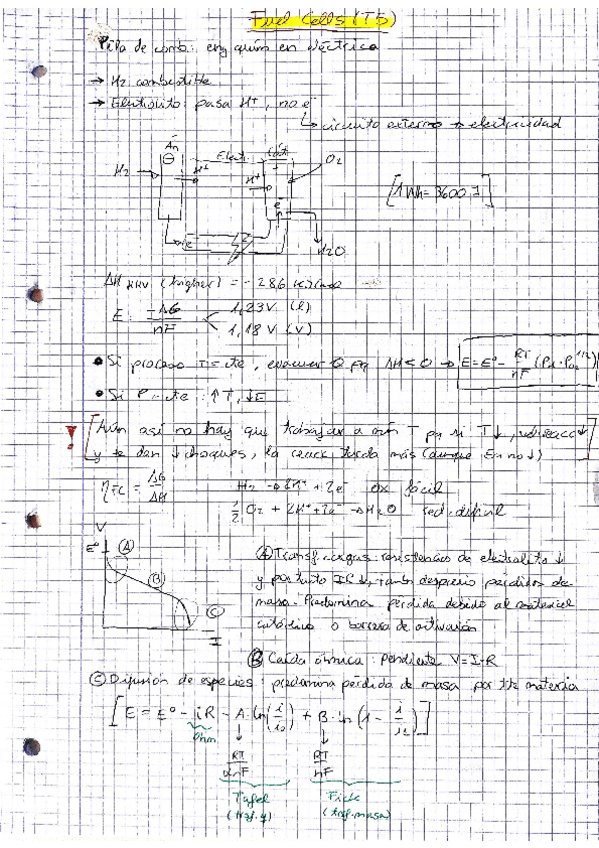 Fuel Cells (T5)
Pila de comb: eng quím en eléctrica
→ H2 combustible
→ Electrolito: pasa H+, no e-
↳ circuito externo → electricidad
An Elect. Cát
H2 H+ H+ O2
[1Wh = 3600 J]
e- H2O
ΔH HHV (higher) = - 286 KJ/mol
E = -ΔG/nF < 1,23V (l)
1,18 V (V)
• Si proceso T = cte, evacuar Q pq ΔH<0 → E = E° - RT/nF (PH2 · PO2^1/2)
• Si P = cte: ↑T, ↓E
! [Aún así no hay que trabajar a T pq si T↓,
y se dan ↓choques, la reacc tarda más (aunque E no ↓)]
ηTC = ΔG/ΔH H2 → 2H+ + 2e- ox fácil
1/2 O2 + 2H+ + 2e- → H2O red. difícil
V
E° (A)
(B)
(C)
I
(A) Transf. cargas: resistencias de electrolito ↓
y por tanto desprecio pérdidas de
masa. Predomina pérdida debido al material
catódico o barrera de activación
(B) Caída óhmica: pendiente V = I·R
(C) Difusión de especies: predomina pérdida de masa por materia
[E = E° - iR - A·ln(i/i0) + B·ln(1 - i/iL)]
Ohm
RT/αnF RT/nF
Tafel Fick
(trf. masa)